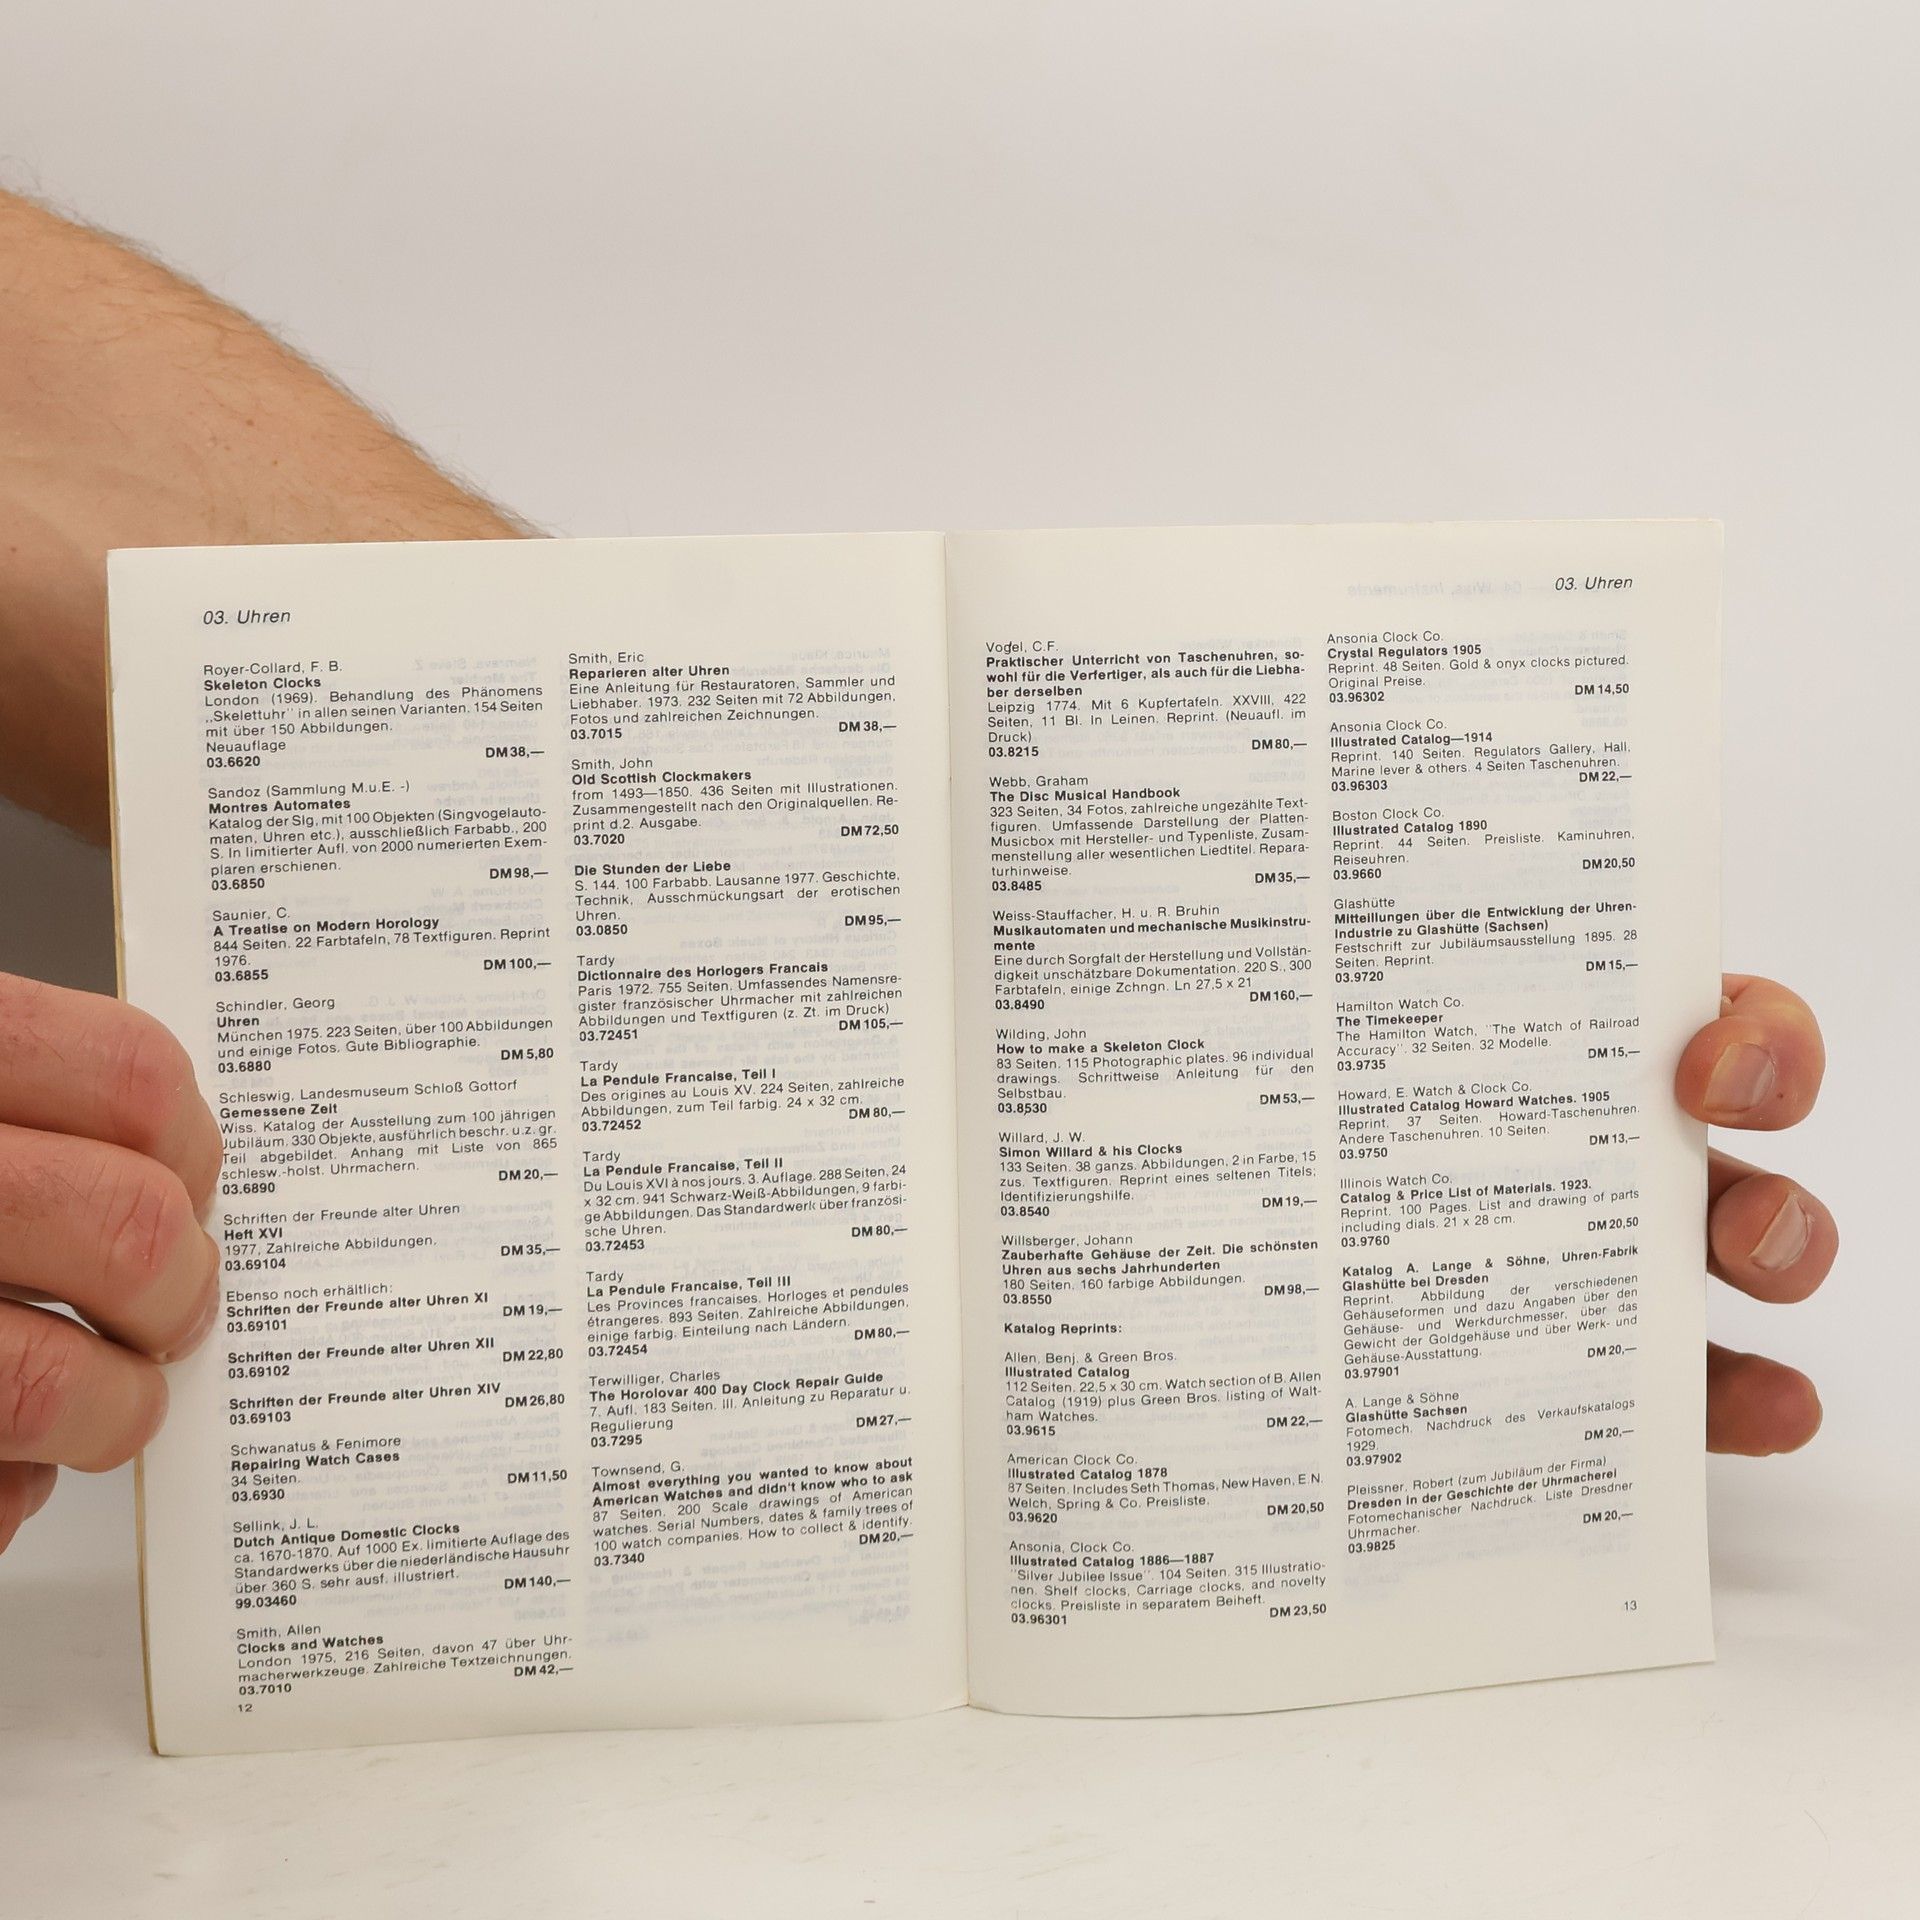 03. Uhren
Royer-Collard, F. B.
Skeleton Clocks
London (1969). Behandlung des Phänomens
„Skelettuhr" in allen seinen Varianten. 154 Seiten
mit über 150 Abbildungen.
Neuauflage
DM 38,—
03.6620
Sandoz (Sammlung M.u.E. -)
Montres Automates
Katalog der Slg, mit 100 Objekten (Singvogelauto-
maten, Uhren etc.), ausschließlich Farbabb., 200
S. In limitierter Aufl. von 2000 numerierten Exem-
plaren erschienen.
DM 98,—
03.6850
Saunier, C.
A Treatise on Modern Horology
844 Seiten. 22 Farbtafeln, 78 Textfiguren. Reprint
1976.
DM 100,—
03.6855
Schindler, Georg
Uhren
München 1975. 223 Seiten, über 100 Abbildungen
und einige Fotos. Gute Bibliographie.
DM 5,80
03.6880
Schleswig, Landesmuseum Schloß Gottorf
Gemessene Zeit
Wiss. Katalog der Ausstellung zum 100 jährigen
Jubiläum. 330 Objekte, ausführlich beschr. u.z. gr.
Teil abgebildet. Anhang mit Liste von 865
schlesw.-holst. Uhrmachern.
DM 20,—
03.6890
Schriften der Freunde alter Uhren
Heft XVI
1977, Zahlreiche Abbildungen.
DM 35,—
03.69104
Ebenso noch erhältlich:
Schriften der Freunde alter Uhren XI
DM 19,—
03.69101
Schriften der Freunde alter Uhren XII
DM 22,80
03.69102
Schriften der Freunde alter Uhren XIV
DM 26,80
03.69103
Schwanatus & Fenimore
Repairing Watch Cases
34 Seiten.
DM 11,50
03.6930
Sellink, J. L.
Dutch Antique Domestic Clocks
ca. 1670-1870. Auf 1000 Ex. limitierte Auflage des
Standardwerks über die niederländische Hausuhr
über 360 S. sehr ausf. illustriert.
DM 140,—
99.03460
Smith, Allen
Clocks and Watches
London 1975, 216 Seiten, davon 47 über Uhr-
macherwerkzeuge. Zahlreiche Textzeichnungen.
DM 42,—
03.7010
12
Smith, Eric
Reparieren alter Uhren
Eine Anleitung für Restauratoren, Sammler und
Liebhaber. 1973. 232 Seiten mit 72 Abbildungen,
Fotos und zahlreichen Zeichnungen.
03.7015 DM 38,—
Smith, John
Old Scottish Clockmakers
from 1493—1850. 436 Seiten mit Illustrationen.
Zusammengestellt nach den Originalquellen. Re-
print d.2. Ausgabe.
DM 72,50
03.7020
Die Stunden der Liebe
S. 144. 100 Farbabb. Lausanne 1977. Geschichte,
Technik, Ausschmückungsart der erotischen
Uhren.
DM 95,—
03.0850
Tardy
Dictionnaire des Horlogers Francais
Paris 1972. 755 Seiten. Umfassendes Namensre-
gister französischer Uhrmacher mit zahlreichen
Abbildungen und Textfiguren (z. Zt. im Druck)
03.72451 DM 105,—
Tardy
La Pendule Francaise, Teil I
Des origines au Louis XV. 224 Seiten, zahlreiche
Abbildungen, zum Teil farbig. 24 x 32 cm.
03.72452 DM 80,—
Tardy
La Pendule Francaise, Teil II
Du Louis XVI à nos jours. 3. Auflage. 288 Seiten, 24
x 32 cm. 941 Schwarz-Weiß-Abbildungen, 9 farbi-
ge Abbildungen. Das Standardwerk über französi-
sche Uhren.
DM 80,—
03.72453
Tardy
La Pendule Francaise, Teil III
Les Provinces francaises. Horloges et pendules
étrangeres. 893 Seiten. Zahlreiche Abbildungen,
einige farbig. Einteilung nach Ländern.
03.72454 DM 80,—
Terwilliger, Charles
The Horolovar 400 Day Clock Repair Guide
7. Aufl. 183 Seiten. Ill. Anleitung zu Reparatur u.
Regulierung
DM 27,—
03.7295
Townsend, G.
Almost everything you wanted to know about
American Watches and didn't know who to ask
87 Seiten. 200 Scale drawings of American
watches. Serial Numbers, dates & family trees of
100 watch companies. How to collect & identify.
03.7340 DM 20,—
03. Uhren
Vogel, C.F.
Praktischer Unterricht von Taschenuhren, so-
wohl für die Verfertiger, als auch für die Liebha-
ber derselben
Leipzig 1774. Mit 6 Kupfertafeln. XXVIII, 422
Seiten, 11 Bl. In Leinen. Reprint. (Neuaufl. im
Druck)
DM 80,—
03.8215
Webb, Graham
The Disc Musical Handbook
323 Seiten, 34 Fotos, zahlreiche ungezählte Text-
figuren. Umfassende Darstellung der Platten-
Musicbox mit Hersteller- und Typenliste, Zusam-
menstellung aller wesentlichen Liedtitel. Repara-
turhinweise.
DM 35,—
03.8485
Weiss-Stauffacher, H. u. R. Bruhin
Musikautomaten und mechanische Musikinstru-
mente
Eine durch Sorgfalt der Herstellung und Vollstän-
digkeit unschätzbare Dokumentation. 220 S., 300
Farbtafeln, einige Zchngn. Ln 27,5 x 21
03.8490 DM 160,—
Wilding, John
How to make a Skeleton Clock
83 Seiten. 115 Photographic plates. 96 individual
drawings. Schrittweise Anleitung für den
Selbstbau.
DM 53,—
03.8530
Willard, J. W.
Simon Willard & his Clocks
133 Seiten. 38 ganzs. Abbildungen, 2 in Farbe, 15
zus. Textfiguren. Reprint eines seltenen Titels;
Identifizierungshilfe.
DM 19,—
03.8540
Willsberger, Johann
Zauberhafte Gehäuse der Zeit. Die schönsten
Uhren aus sechs Jahrhunderten
180 Seiten. 160 farbige Abbildungen.
DM 98,—
03.8550
Katalog Reprints:
Allen, Benj. & Green Bros.
Illustrated Catalog
112 Seiten. 22,5 x 30 cm. Watch section of B. Allen
Catalog (1919) plus Green Bros. listing of Walt-
ham Watches.
DM 22,—
03.9615
American Clock Co.
Illustrated Catalog 1878
87 Seiten. Includes Seth Thomas, New Haven, E.N.
Welch, Spring & Co. Preisliste.
DM 20,50
03.9620
Ansonia, Clock Co.
Illustrated Catalog 1886—1887
"Silver Jubilee Issue". 104 Seiten. 315 Illustratio-
nen. Shelf clocks, Carriage clocks, and novelty
clocks. Preisliste in separatem Beiheft.
03.96301 DM 23,50
Ansonia Clock Co.
Crystal Regulators 1905
Reprint. 48 Seiten. Gold & onyx clocks pictured.
Original Preise.
DM 14,50
03.96302
Ansonia Clock Co.
Illustrated Catalog—1914
Reprint. 140 Seiten. Regulators Gallery, Hall,
Marine lever & others. 4 Seiten Taschenuhren.
03.96303 DM 22,—
Boston Clock Co.
Illustrated Catalog 1890
Reprint. 44 Seiten. Preisliste. Kaminuhren,
Reiseuhren.
DM 20,50
03.9660
Glashütte
Mitteilungen über die Entwicklung der Uhren-
Industrie zu Glashütte (Sachsen)
Festschrift zur Jubiläumsausstellung 1895. 28
Seiten. Reprint.
DM 15,—
03.9720
Hamilton Watch Co.
The Timekeeper
The Hamilton Watch, "The Watch of Railroad
Accuracy". 32 Seiten. 32 Modelle.
DM 15,—
03.9735
Howard, E. Watch & Clock Co.
Illustrated Catalog Howard Watches. 1905
Reprint. 37 Seiten. Howard-Taschenuhren.
Andere Taschenuhren. 10 Seiten.
DM 13,—
03.9750
Illinois Watch Co.
Catalog & Price List of Materials. 1923.
Reprint. 100 Pages. List and drawing of parts
including dials. 21 x 28 cm.
DM 20,50
03.9760
Katalog A. Lange & Söhne, Uhren-Fabrik
Glashütte bei Dresden
Reprint. Abbildung der verschiedenen
Gehäuseformen und dazu Angaben über den
Gehäuse- und Werkdurchmesser, über das
Gewicht der Goldgehäuse und über Werk- und
Gehäuse-Ausstattung.
DM 20,—
03.97901
A. Lange & Söhne
Glashütte Sachsen
Fotomech. Nachdruck des Verkaufskatalogs
1929.
DM 20,—
03.97902
Pleissner, Robert (zum Jubiläum der Firma)
Dresden in der Geschichte der Uhrmacherei
Fotomechanischer Nachdruck. Liste Dresdner
Uhrmacher.
DM 20,—
03.9825
13